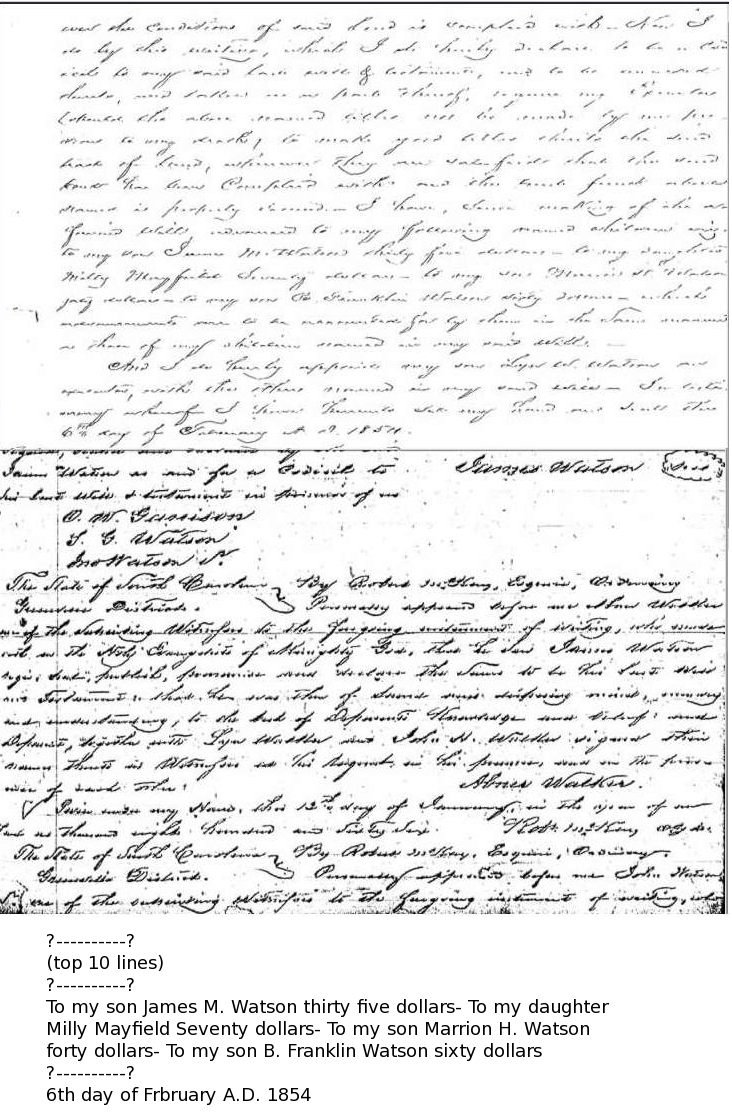 over the conditions of said bond is complied with - Now I
do by this writing, which I do hereby declare to be a Cod
icil to my said last will & testament, and to be annexed
thereto, and taken as a part thereof, require my Executors
(should the above named titles not be made by me pre-
vious to my death) to make good titles to the said
tract of land, whenever they are satisfied that the said
bond has been Complied with and the
named is properly I have, Since making of the
Will, advanced to my following named children viz.
to my son James M. Watson thirty five dollars - to my daughter
Milly Mayfield Seventy dollars - to my son H. Watson
forty dollars - to my son B. Franklin Watson sixty dollars - which
advancements are to be accounted for by them in the same manner
as those of my children named in my said Will. -
And I do hereby appoint my son W. Watson an
executor, with the others named in my said will - In testi
mony whereof I have hereunto set my hand and seal this
6th day of February A. D. 1854.
James Watson as and for a Codicil to James Watson Seal
his last Will & testament in presence of us
O. W. Garrison
S. G. Watson
Jno Watson Sr.
The State of South Carolina By Robert McKay, Esquire, Ordinary
Greenville District. Personally appeared before me Abner Walker
one of the subscribing Witnesses to the foregoing instrument of writing, who made
oath on the Holy Evangelists of Almighty God, that he saw James Watson
sign, seal, publish, pronounce and declare the same to be his last Will
and Testament: that he was then of sound and disposing mind, memory
and understanding, to the best of Deponents Knowledge and belief: and
Deponent, together with Walker and John H. Walker signed their
names thereto as Witnesses at his request in his presence, and in the pres-
ence of each other: Abner Walker.
Given under my Hand, this 12th day of January, in the year of our
Lord one thousand eight hundred and Sixty Six. Robt. McKay
The State of South Carolina By Robert McKay, Esquire, Ordinary.
Greenville District. Personally appeared before me John Watson
Sr. one of the subscribing Witnesses to the foregoing instrument of writing, who
?----------?
(top 10 lines)
?----------?
To my son James M. Watson thirty five dollars- To my daughter
Milly Mayfield Seventy dollars- To my son Marrion H. Watson
forty dollars- To my son B. Franklin Watson sixty dollars
?----------?
6th day of Frbruary A.D. 1854